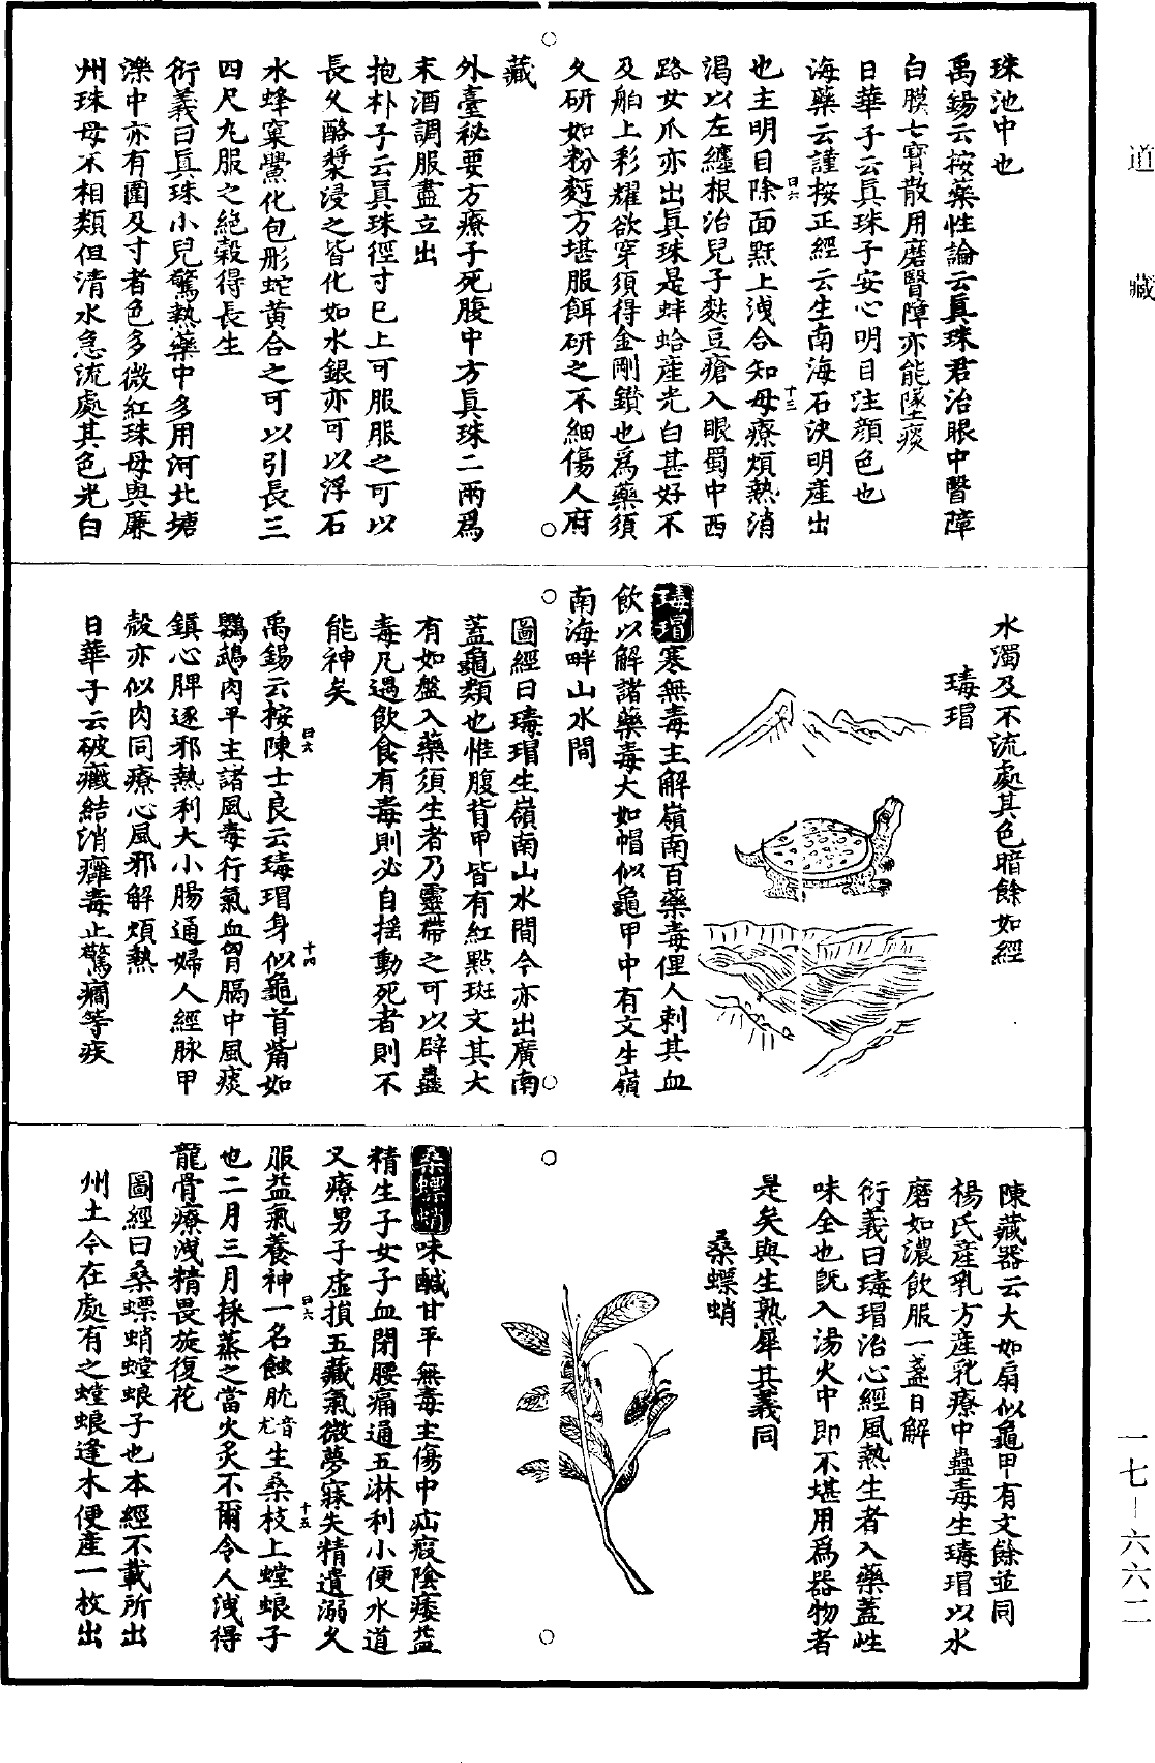 道藏
珠池中也
禹錫云按藥性論云眞珠君治眼中瞖障
白膜七寶散用磨瞖障亦能墜痰
日華子云眞珠子安心明目注顔色也
海藥云謹按正經云生南海石決明產出
也主明目除面䵟上洩合知母療煩熱消
渴以左纏根治兒子麩豆瘡入眼蜀中西
路女爪亦出眞珠是蚌蛤產光白甚好不
及舶上彩耀欲穿須得金剛鑽也爲藥須
久研如粉麪方堪服餌研之不細傷人府
藏
外臺秘要方療子死腹中方眞珠二兩爲
末酒調服盡立出
抱朴子云眞珠徑寸已上可服服之可以
長久酪漿浸之皆化如水銀亦可以浮石
水蜂窠鱟化包彤蛇黄合之可以引長三
四尺丸服之絶穀得長生
衍義曰眞珠小兒驚熱藥中多用河北塘
濼中亦有圍及寸者色多微紅珠母與廉
州珠母不相類但清水急流處其色光白
水濁及不流處其色暗餘如經
瑇瑁
瑇瑁寒無毒主解嶺南百藥毒俚人刺其血
飲以解諸藥毒大如帽似龜甲中有文生嶺
南海畔山水間
圖經曰瑇瑁生嶺南山水間今亦出廣南
蓋龜類也惟腹背甲皆有紅點斑文其大
有如盤入藥須生者乃靈帶之可以辟蠱
毒凡遇飲食有毒則必自摇動死者則不
能神矣
禹錫云按陳士良云瑇瑁身似龜首觜如
鸚鵡肉平主諸風毒行氣血胷膈中風痰
鎮心脾逐邪熱利大小腸通婦人經脉甲
殼亦似肉同療心風邪解煩熱
日華子云破癥結消癰毒止驚癇等疾
陳藏器云大如扇似龜甲有文餘並同
楊氏產乳方產乳療中蠱毒生瑇瑁以水
磨如濃飲服一盞日解
衍義曰瑇瑁治心經風熱生者入藥蓋性
味全也旣入湯火中即不堪用爲器物者
是矣與生熟犀其義同
桑螵蛸
桑螵蛸味鹹甘平無毒主傷中疝瘕陰痿益
精生子女子血閉腰痛通五淋利小便水道
又療男子虛損五藏氣微夢寐失精遺溺久
服益氣養神一名蝕肬音尤生桑枝上螳蜋子
也二月三月採蒸之當火炙不爾令人洩得
龍骨療洩精畏旋復花
圖經曰桑螵蛸螳蜋子也本經不載所出
州土今在處有之螳蜋逢木便產一枚出
曰六
十三
曰六
十四
曰六
十五
一七–六六二